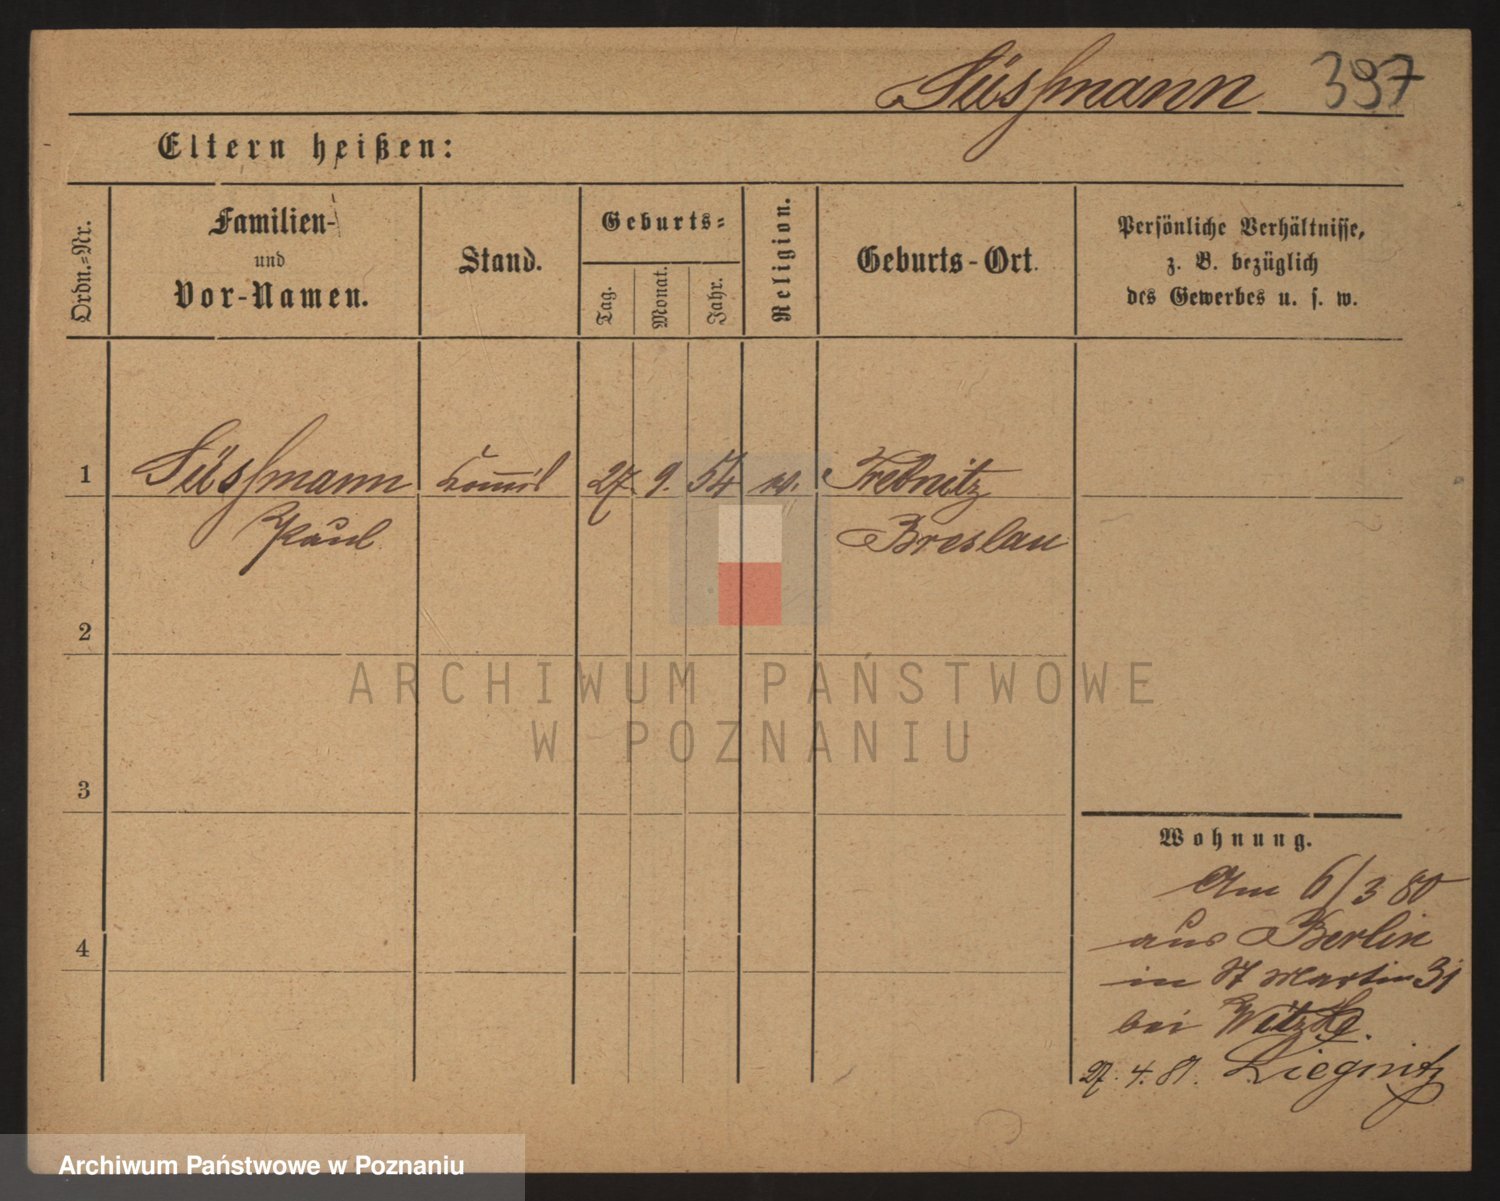 Süssmann 397
Eltern heißen:
Ordn.=Nr.
Familien-
und
Vor-Namen.
Stand.
Geburts=
Tag.
Monat.
Jahr.
Religion.
Geburts-Ort.
Persönliche Verhältnisse,
z. B. bezüglich
des Gewerbes u. s. w.
1 Süssmann 27. 9. 54 Trebnitz
Paul Breslau
2
3
4
Wohnung.
Am 6/3 80
aus Berlin
in St Martin 31
bei Witzke.
27. 4. 81. Liegnitz
ARCHIWUM PAŃSTWOWE
W POZNANIU
Archiwum Państwowe w Poznaniu